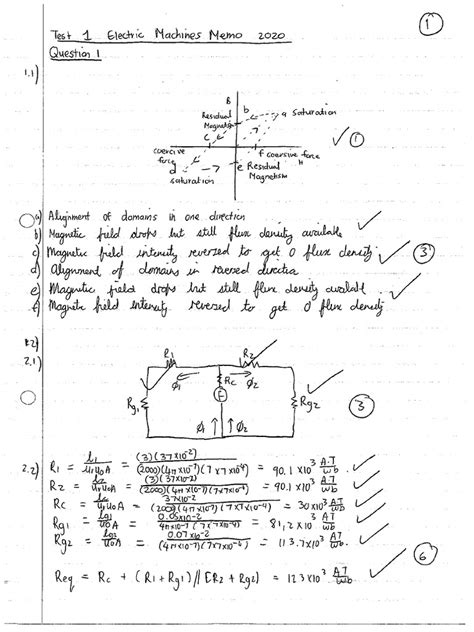 ①
Test 1 Electric Machines Memo 2020
Question 1
1.1)
B
Residual Magnetism
b
a saturation
c
coercive force
f coercive force
H
d
saturation
e Residual Magnetism
✓①
a) Alignment of domains in one direction
b) Magnetic field drops but still flux density available ✓
c) Magnetic field intensity reversed to get 0 flux density ✓ ③
d) Alignment of domains in reversed direction
e) Magnetic field drops but still flux density availabl. ✓
f) Magnetic field intensity reversed to get 0 flux density
2.1)
R1 R2
Ø1 Rc Ø2
Rg1 F Rg2 ✓
Ø1 Ø2
③
2.2) R1 = l1/UrUoA = (3)(37x10^-2)/(2000)(4πx10^-7)(7x7x10^-4) = 90.1 x10^3 A.T/wb. ✓
R2 = l2/UrUoA = (3)(37x10^-2)/(2000)(4πx10^-7)(7x7x10^-4) = 90.1 x10^3 AT/wb ✓
Rc = lc/UrUoA = 37x10^-2/(2000)(4πx10^-7)(7x7x10^-4) = 30x10^3 AT/wb ✓
Rg1 = lg1/UoA = 0.05x10^-2/4πx10^-7(7x7x10^-4) = 81,2 x10^3 AT/wb ✓
Rg2 = lg2/UoA = 0.07x10^-2/(4πx10^-7)(7x7x10^-4) = 113.7x10^3 AT/wb. ✓
⑥
Req = Rc + (R1 + Rg1) // [R2 + Rg2) = 123x10^3 AT/wb ✓